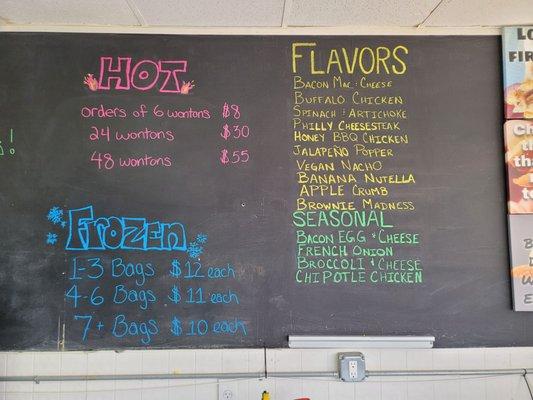 HOT
orders of 6 wontons $8
24 wontons $30
48 wontons $55
Frozen
1-3 Bags $12 each
4-6 Bags $11 each
7+ Bags $10 each
FLAVORS
BACON MAC & CHEESE
BUFFALO CHICKEN
SPINACH & ARTICHOKE
PHILLY CHEESESTEAK
HONEY BBQ CHICKEN
JALAPEÑO POPPER
VEGAN NACHO
BANANA NUTELLA
APPLE CRUMB
BROWNIE MADNESS
SEASONAL
BACON EGG & CHEESE
FRENCH ONION
BROCCOLI & CHEESE
CHIPOTLE CHICKEN